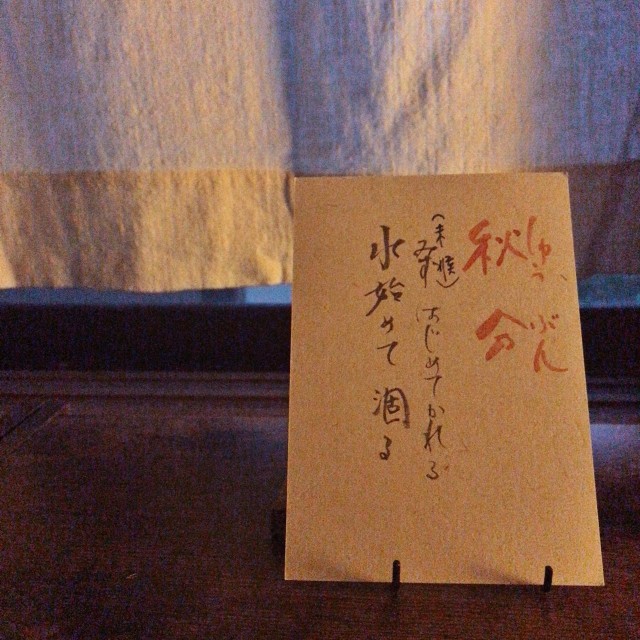 しゅう ぶん
秋分
(末候)
みず はじめてかれる
水始めて涸る